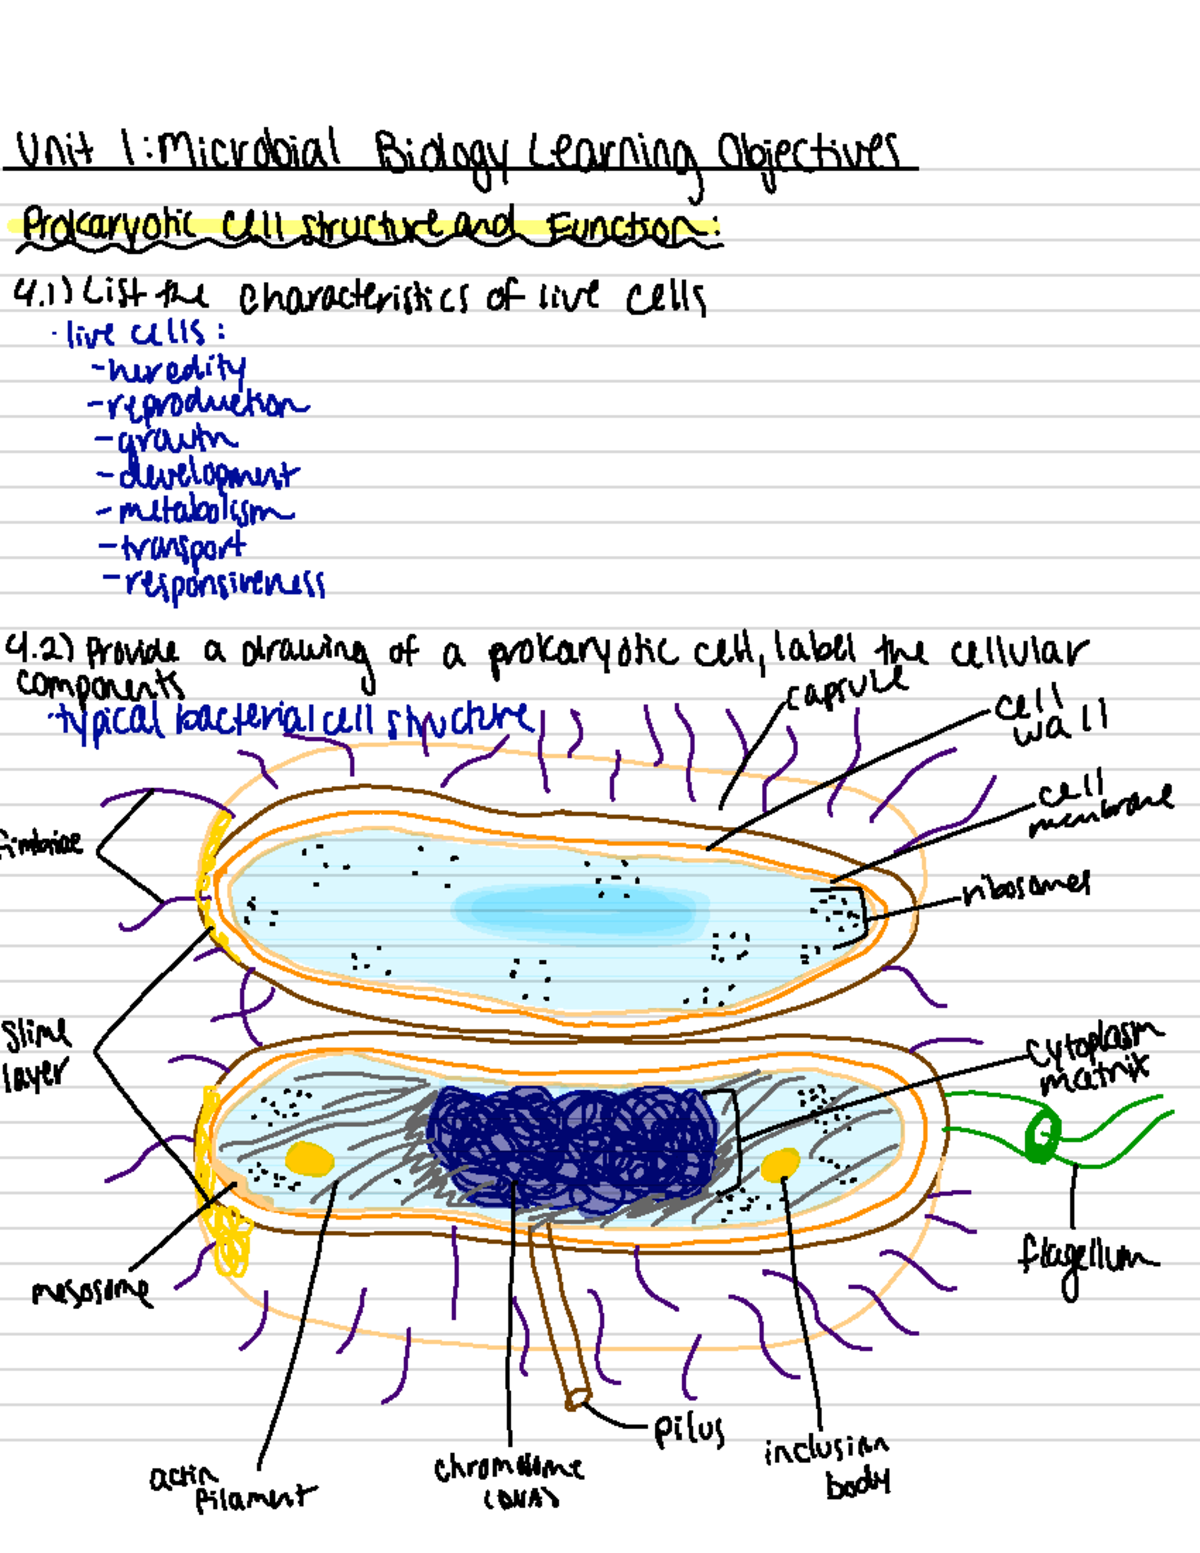 Unit 1: Microbial Biology Learning Objectives
Prokaryotic cell structure and Function:
4.1) List the characteristics of live cells
· live cells:
- heredity
- reproduction
- growth
- development
- metabolism
- transport
- responsiveness
4.2) Provide a drawing of a prokaryotic cell, label the cellular
components
· typical bacterial cell structure
capsule
cell
wall
cell
membrane
fimbriae
ribosomes
slime
layer
cytoplasm
matrix
flagellum
mesosome
pilus
inclusion
body
chromosome
(DNA)
actin
filament